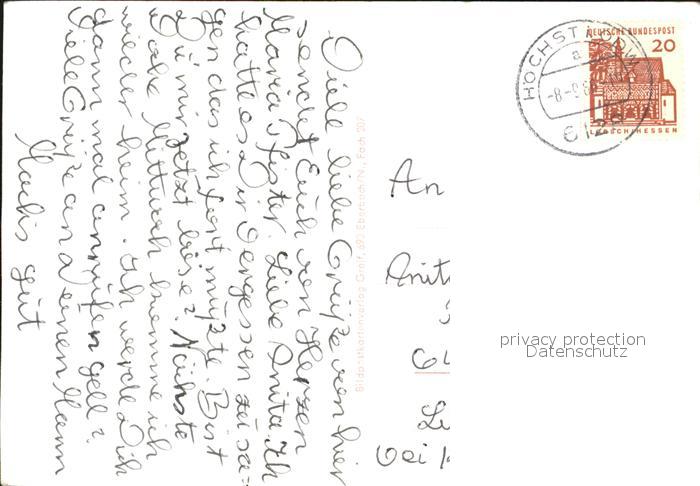 Viele liebe Grüße von hier
sendet Euch von Herzen
Maria Pfister. Liebe Anita. Ich
hatte es Dir vergessen zu sa-
gen das ich fort mußte. Bist
Du mir jetzt böse? Nächste
Woche Mittwoch komme ich
wieder heim. Ich werde Dich
dann mal anrufen gell?
Viele Grüße an Deinen Mann
Machs gut
Bildpostkartenverlag Graif, 692 Eberbach/N., Fach 207
An
Anit
64
bei
HÖCHST
a
-8.-9.6
6129
DEUTSCHE BUNDESPOST
20
LORSCH/HESSEN
privacy protection
Datenschutz